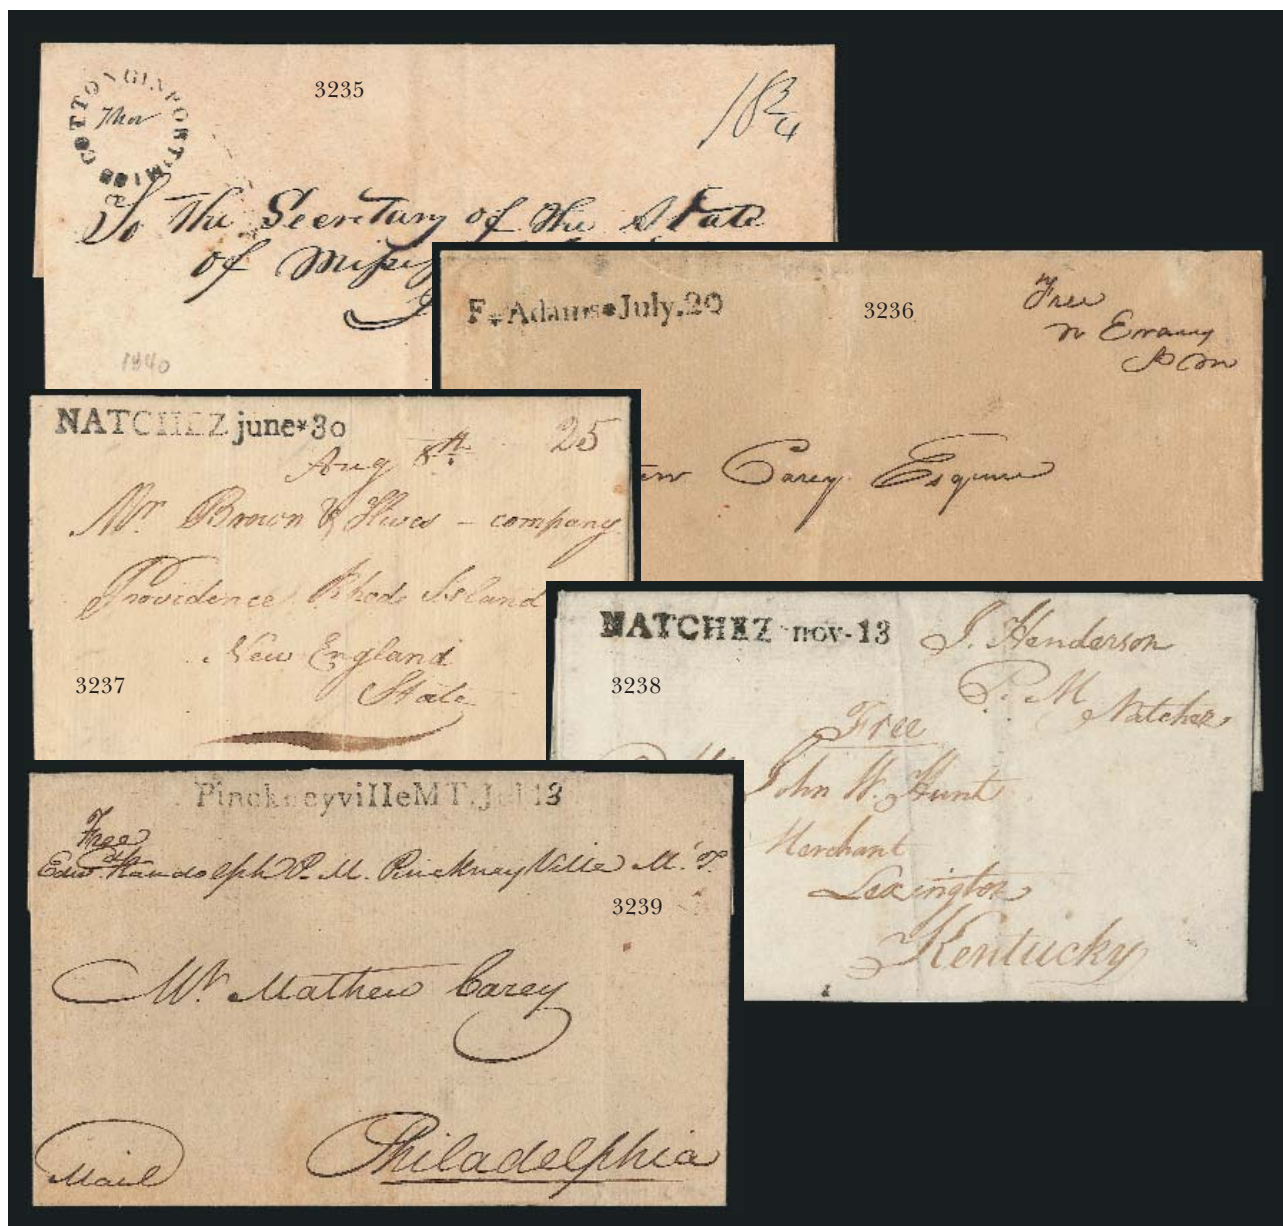 COTTON GIN PORT MISS
3235
18 3/4
To the Secretary of the State
of Missis
1840
F*Adams*July.20
3236
Free
PM
Carey Esquire
NATCHEZ june*30
25
Aug 8th
Mr Brown & Ives - company
Providence Rhode Island
New England
State
3237
NATCHEZ nov-13
J. Henderson
P. M
Natchez
3238
Free
John W. Hunt
Merchant
Lexington
Kentucky
PinckneyvilleMT.Jul 13
Free
Edwd Randolph P. M. PinckneyVille M. T.
3239
Mr Mathew Carey
Philadelphia
Mail